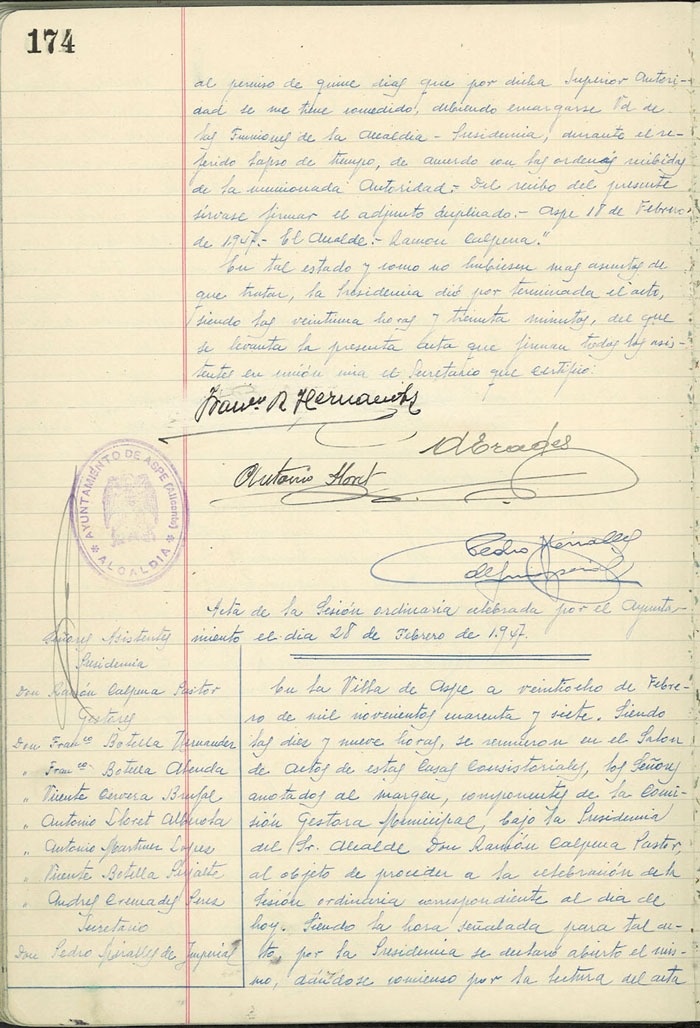 174
al permiso de quince dias que por dicha Superior Autori-
dad se me tiene concedido, debiendo encargarse Vd de
las Funciones de la Alcaldia-Presidencia, durante el re-
ferido lapso de tiempo, de acuerdo con las ordenes recibidas
de la mencionada Autoridad.- Del recibo del presente
sirvase firmar el adjunto duplicado.- Aspe 18 de Febrero
de 1947.- El Alcalde.- Ramón Calpena."
En tal estado y como no hubiesen mas asuntos de
que tratar, la Presidencia dió por terminada el acto,
siendo las veintiuna horas y treinta minutos, del que
se levanta la presente acta que firman todos los asis-
tentes en unión mia el Secretario que certifico:
Franco Hernandez
Antonio Lloret
AYUNTAMIENTO DE ASPE (Alicante)
* ALCALDIA *
Pedro Miralles
de Imperial
Acta de la Sesión ordinaria celebrada por el Ayunta-
miento el dia 28 de Febrero de 1.947.
Señores Asistentes
Presidencia
Don Ramón Calpena Pastor
Gestores
Don Franco Botella Hernander
" Franco Botella Abenda
" Vicente Cervera Brufal
" Antonio Lloret Alberola
" Antonio Martinez López
" Vicente Botella
" Andres Cremades Perez
Secretario
Don Pedro Miralles de Imperial
En la Villa de Aspe a veintiocho de Febre-
ro de mil novecientos cuarenta y siete. Siendo
las diez y nueve horas, se reunieron en el Salon
de actos de estas Casas Consistoriales, los Señores
anotados al margen, componentes de la Comi-
sión Gestora Municipal, bajo la Presidencia
del Sr. Alcalde Don Ramón Calpena Pastor,
al objeto de proceder a la celebración de la
Sesión ordinaria correspondiente al dia de
hoy. Siendo la hora señalada para tal ac-
to, por la Presidencia se declaró abierto el mis-
mo, dándose comienzo por la lectura del acta